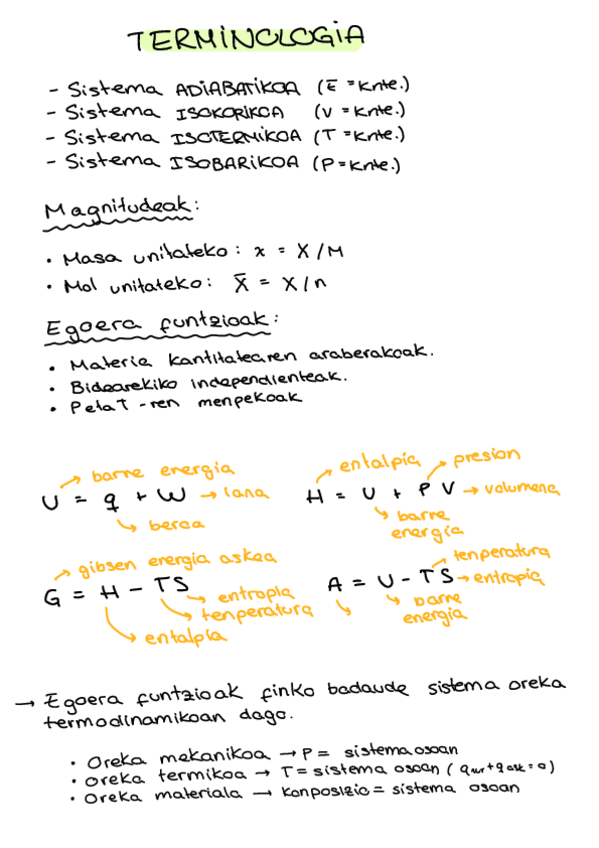 TERMINOLOGIA
- Sistema ADIABATIKOA (E̅ = Knte.)
- Sistema ISOKORIKOA (V = Knte.)
- Sistema ISOTERMIKOA (T = Knte.)
- Sistema ISOBARIKOA (P = Knte.)
Magnitudeak:
• Masa unitateko: x = X/M
• Mol unitateko: X̅ = X/n
Egoera funtzioak:
• Materia kantitatearen araberakoak.
• Bidearekiko independienteak.
• P eta T -ren menpekoak
barne energia
U = q + W → lana
beroa
entalpia presion
H = U + P V → volumena
barne
energia
gibsen energia askea
G = H - TS
entropia
tenperatura
entalpia
tenperatura
A = U - TS → entropia
barne
energia
→ Egoera funtzioak finko badaude sistema oreka
termodinamikoan dago.
• Oreka mekanikoa → P = sistema osoan
• Oreka termikoa → T = sistema osoan (q + q = 0)
• Oreka materiala → Konposizio = sistema osoan